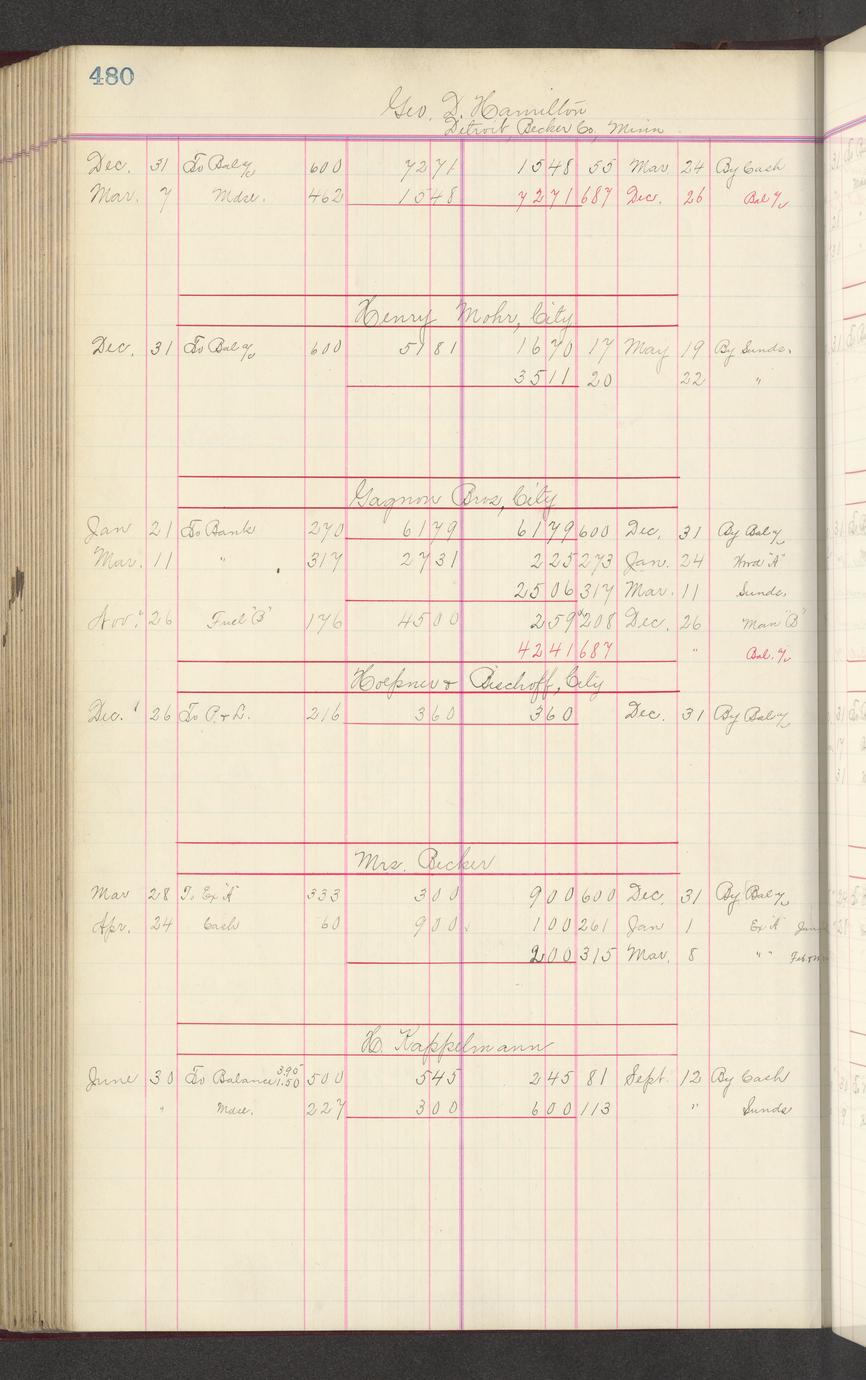 480
Geo. D. Hamilton
Detroit, Becker Co, Minn
Dec. 31 To Bal % 600 72 71 15 48 55 Mar 24 By Cash
Mar. 7 Mdse. 462 15 48 72 71 687 Dec. 26 Bal %
Henry Mohr, City
Dec. 31 To Bal % 600 51 81 16 70 17 May 19 By Sunds.
35 11 20 22 "
Gagnon Bros, City
Jan 21 To Bank 270 61 79 61 79 600 Dec. 31 By Bal %
Mar. 11 " 317 27 31 2 25 273 Jan. 24 Wood "A"
25 06 317 Mar. 11 Sunds.
Nov. 26 Fuel "B" 176 45 00 2 59 208 Dec. 26 Man "B"
42 41 687 " Bal. %
Hoepner & Bischoff, City
Dec. 26 To P. & L. 216 3 60 3 60 Dec. 31 By Bal %
Mrs. Becker
Mar 28 To Ex "A" 333 3 00 9 00 600 Dec. 31 By Bal %
Apr. 24 Cash 60 9 00 1 00 261 Jan 1 Ex "A"
2 00 315 Mar. 8 " "
H. Kappelmann
June 30 To Balance 3.95 1.50 500 5 45 2 45 81 Sept. 12 By Cash
" Mdse. 227 3 00 6 00 113 " Sunds